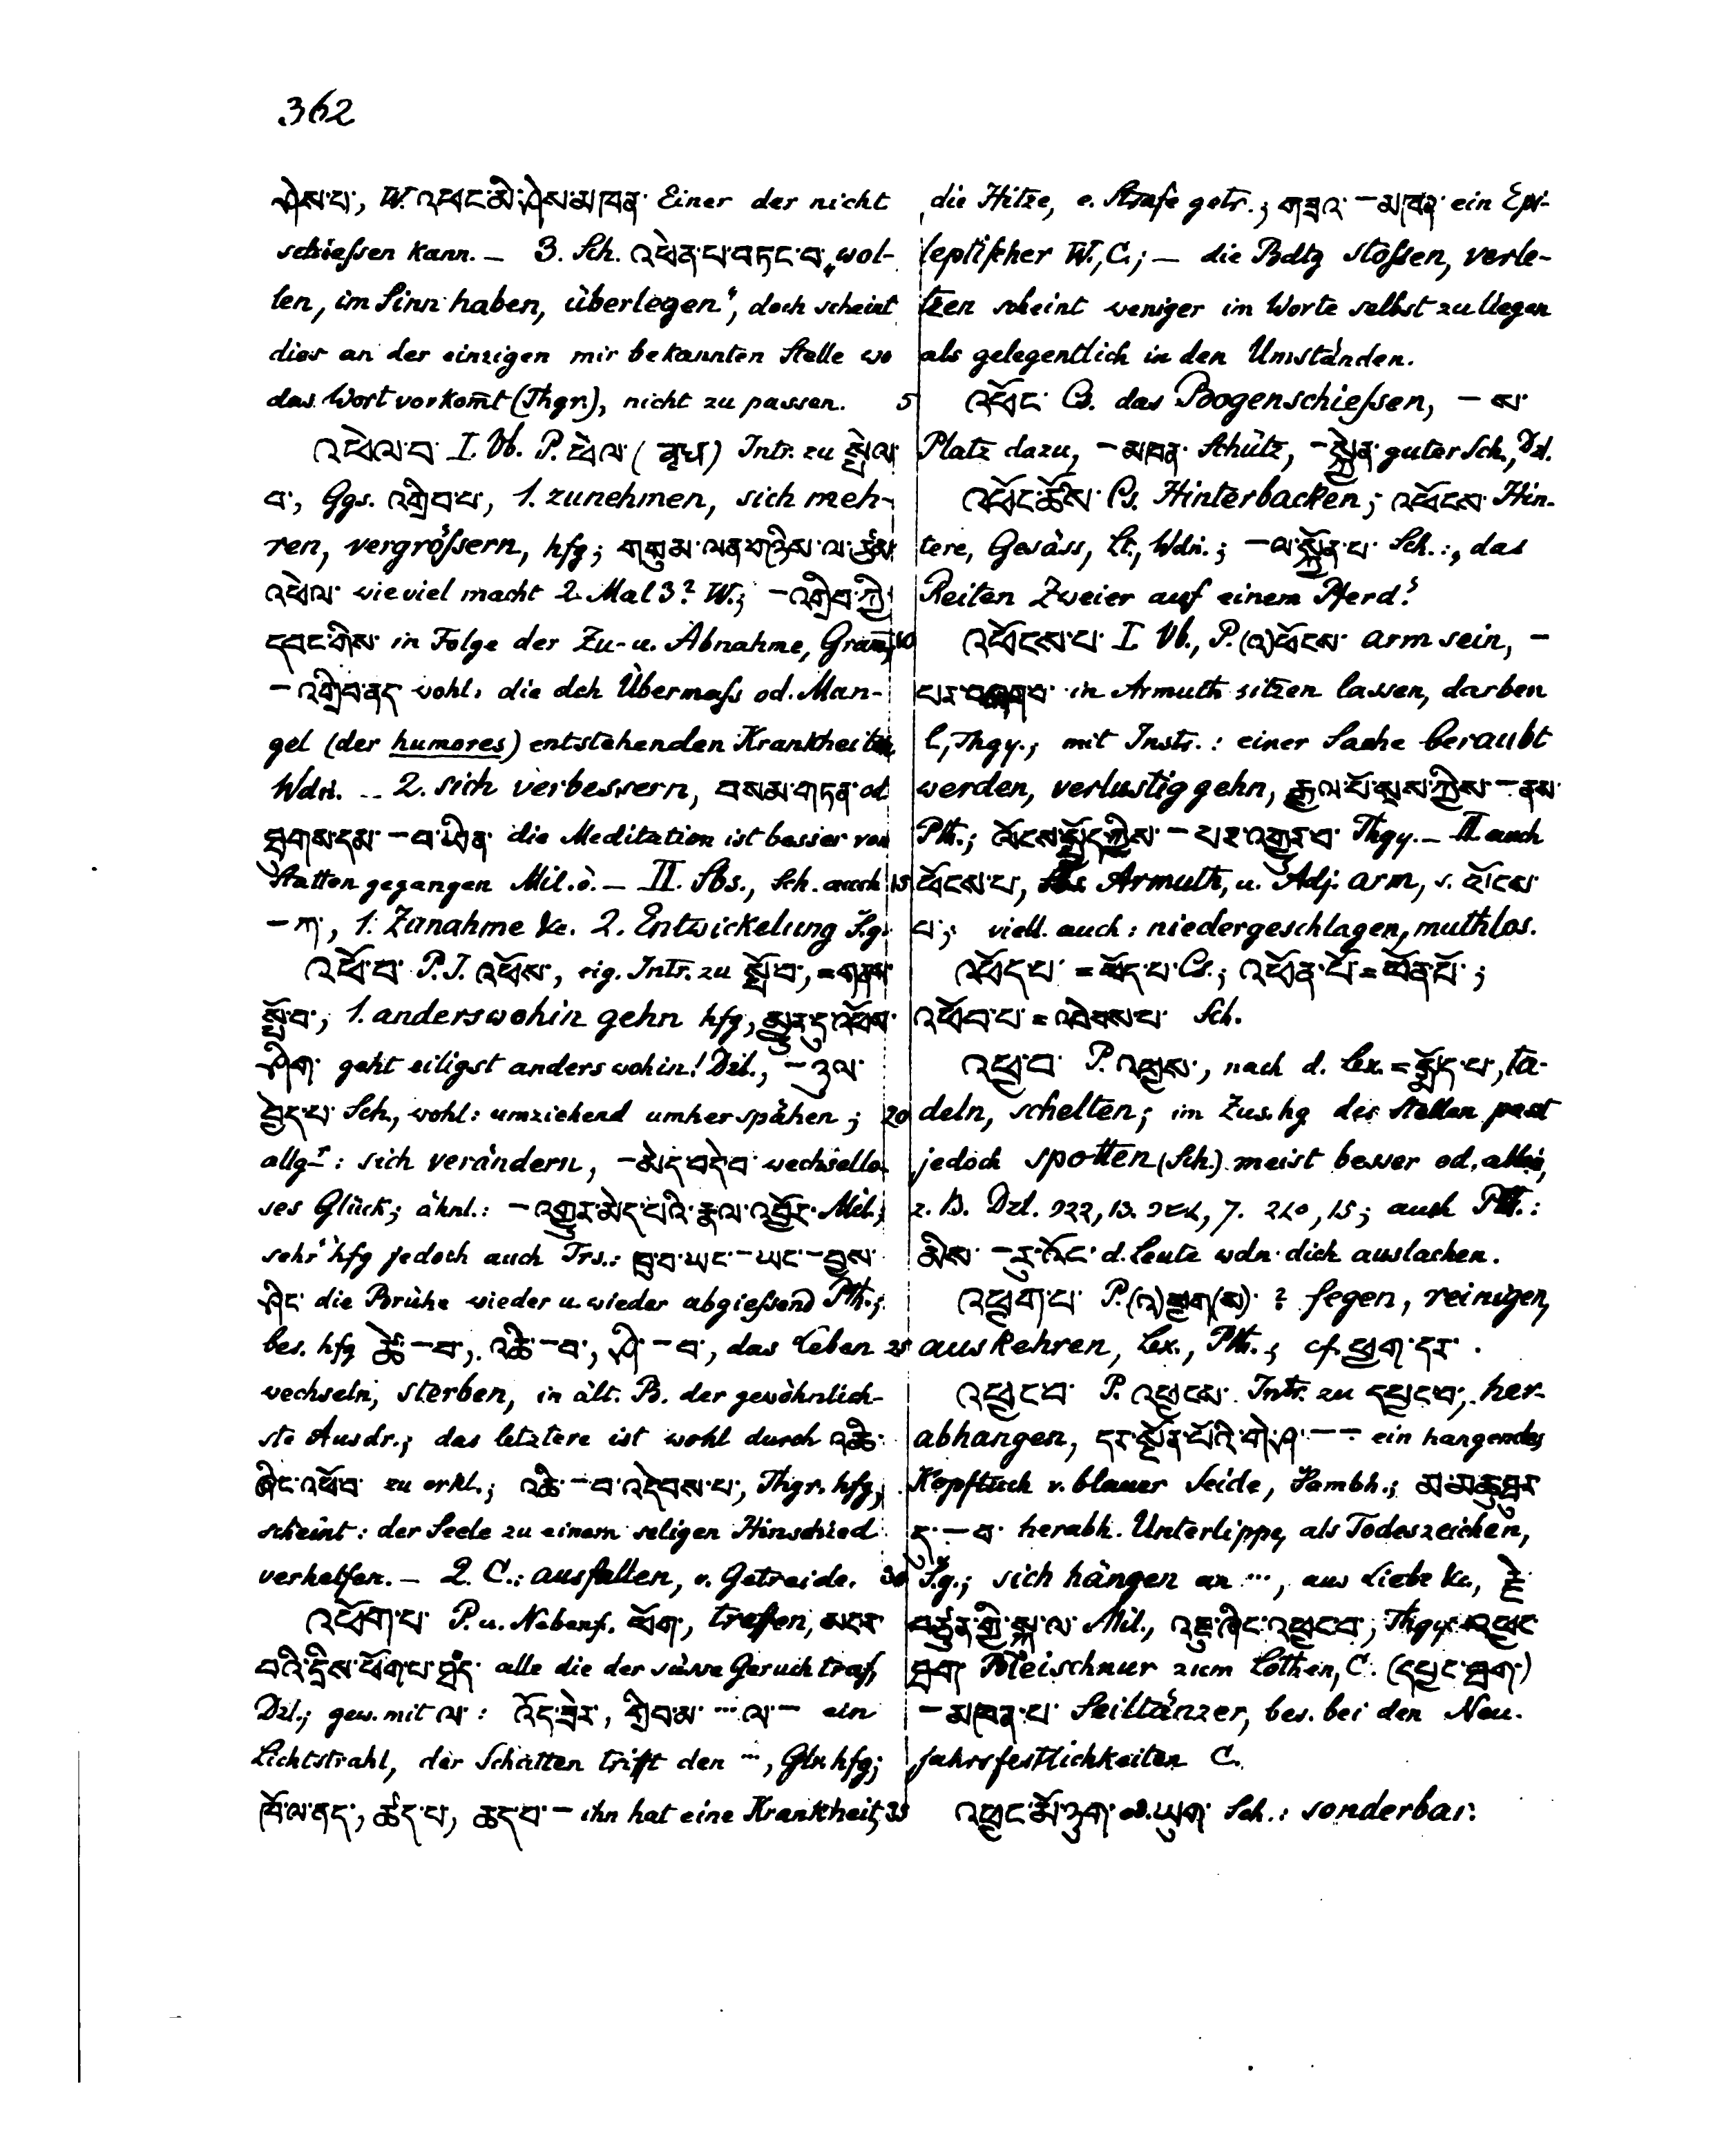 362
ཤེས་པ་, W. འཕང་མི་ཤེས་མཁན་ Einer der nicht
schießen kann. — 3. Sch. འཕེན་པ་བཏང་བ་ „wol-
len, im Sinn haben, überlegen“, doch scheint
dies an der einzigen mir bekannten Stelle wo
das Wort vorkom̄t (Thgr.), nicht zu passen.
འཕེལ་བ་ I. Vb. P. ཕེལ་ Intr. zu སྤེལ་
བ་, Ggs. འགྲིབ་པ་, 1. zunehmen, sich meh-
ren, vergrößern, hfg; གསུམ་ལན་གཉིས་ལ་ཙམ་
འཕེལ་ wieviel macht 2 Mal 3? W.; — འགྲིབ་ཀྱི་
དབང་གིས་ in Folge der Zu- u. Abnahme, Gram̄;
— འགྲིབ་ནད་ wohl: die dch Übermaß od. Man-
gel (der humores) entstehenden Krankheiten
Wdn. — 2. sich verbessern, བསམ་གཏན་ od
ཐུགས་དམ་ — བ་ཡིན་ die Meditation ist besser von
Statten gegangen Mil. ö. — II. Sbs., Sch. auch
— ཀ་, 1. Zunahme &c. 2. Entwickelung S.g.
འཕོ་བ་ P. I. འཕོས་, eig. Intr. zu སྤོ་བ་, = གནས་
སྤོ་བ་, 1. anderswohin gehn hfg, མྱུར་དུ་འཕོས་
ཤིག་ geht eiligst anderswohin! Dzl., — ཉུལ་
བྱེད་པ་ Sch., wohl: umziehend umherspähen;
allgr: sich verändern, — མེད་བདེ་བ་ wechsello-
ses Glück; ähnl.: — འགྱུར་མེད་པའི་རྣལ་འབྱོར་ Mil.;
sehr hfg jedoch auch Trs.: ཁུ་བ་ཡང་ — ཡང་ — བྱས་
ཤིང་ die Brühe wieder u. wieder abgießend Pth.;
bes. hfg ཚེ་ — བ་, འཆི་ — བ་, ཤི་ — བ་, das Leben
wechseln, sterben, in ält. B. der gewöhnlich-
ste Ausdr.; das letztere ist wohl durch འཆི་
ཞིང་འཕོ་བ་ zu erkl.; འཆི་ — བ་འདེབས་པ་, Thgr. hfg,
scheint: der Seele zu einem seligen Hinschied
verhelfen. — 2. C.: ausfallen, v. Getreide.
འཕོག་པ་ P. u. Nebenf. ཕོག་, treffen, མངར་
བའི་དྲིས་ཕོག་པ་ཐམས་ཅད་ alle die der süsse Geruch traf,
Dzl.; gew. mit ལ་: འོད་ཟེར་, གྲིབ་མ་ ... ལ་ — ein
Lichtstrahl, der Schatten trift den ..., Glr. hfg;
ཁོ་ལ་ནད་, ཚད་པ་, ཆད་པ་ — ihn hat eine Krankheit,
die Hitze, e. Strafe getr.; གཟའ་ — མཁན་ ein Epi-
leptischer W., C.; — die Bdtg stoßen, verle-
tzen scheint weniger im Worte selbst zu liegen
als gelegentlich in den Umständen.
5 འཕོང་ Cs. das Bogenschießen, — ས་
Platz dazu, — མཁན་ Schütz, — སྐྱེན་ guter Sch., Dzl.
འཕོང་ཚོས་ Cs. Hinterbacken; འཕོངས་ Hin-
tere, Gesäss, Lt., Wdn.; — ལ་སྐྱོན་པ་ Sch.: „das
Reiten Zweier auf einem Pferd“.
10 འཕོངས་པ་ I Vb., P. (འ)ཕོངས་ arm sein, —
པར་ in Armuth sitzen lassen, darben
l., Thgy.; mit Instr.: einer Sache beraubt
werden, verlustig gehn, རྒྱལ་པོ་སྲས་ཀྱིས་ — ནས་
Pth.; ལོངས་སྤྱོད་ཀྱིས་ — པར་འགྱུར་བ་ Thgy. — II. auch
15 ཕོངས་པ་, Armuth, u. Adj. arm, s.
པ་; viell. auch: niedergeschlagen, muthlos.
འཕོད་པ་ = ཕོད་པ་ Cs.; འཕོན་པོ་ = ཕོན་པོ་;
འཕོབ་པ་ = འབེབས་པ་ Sch.
འཕྱ་བ་ P. འཕྱས་, nach d. Lex. = སྨོད་པ་, ta-
20 deln, schelten; im Zus.hg der Stellen past
jedoch spotten (Sch.) meist besser od. allein,
z. B. Dzl. auch Pth.:
མིས་ — རུ་འོང་ d. Leute wdn dich auslachen.
འཕྱག་པ་ P. (འ)ཕྱག(ས)་ ? fegen, reinigen,
25 auskehren, Lex., Pth.; cf. ཕྱག་དར་.
འཕྱང་བ་ P. འཕྱངས་ Intr. zu དཔྱང་བ་, her-
abhangen, དར་སྔོན་པོའི་ — — ein hangendes
Kopftuch v. blauer Seide, Sambh.; མ་མཆུ་ཐུར་
དུ་ — བ་ herabh. Unterlippe, als Todeszeichen,
30 S.g.; sich hängen an ..., aus Liebe &c., རྗེ་
བཙུན་གྱི་སྐུ་ལ་ Mil., འཇུ་ཞིང་འཕྱང་བ་, Thgy. འཕྱང་
ཐག་ Bleischnur zum Lothen, C. (དཔྱང་ཐག་)
— མཁན་པ་ Seiltänzer, bes. bei den Neu-
jahrsfestlichkeiten C.
35 འཕྱང་མོ་ཉུག་ od. ཡུག་ Sch.: sonderbar.